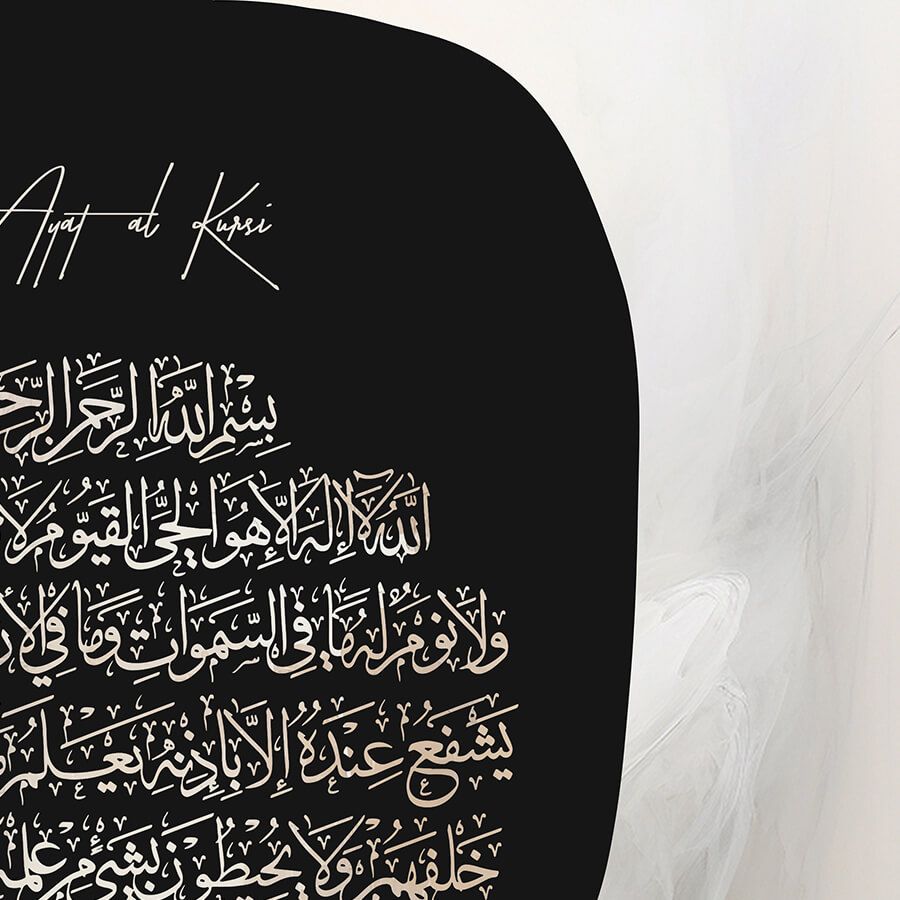 Ayat al Kursi
بِسْمِ اللَّهِ الرَّحْمٰنِ
اللَّهُ لَآ إِلٰهَ إِلَّا هُوَ الْحَيُّ الْقَيُّومُ لَا
وَلَا نَوْمٌ لَهُ مَا فِي السَّمٰوَاتِ وَمَا فِي
يَشْفَعُ عِنْدَهُ إِلَّا بِإِذْنِهِ يَعْلَمُ
خَلْفَهُمْ وَلَا يُحِيطُونَ بِشَيْءٍ مِنْ